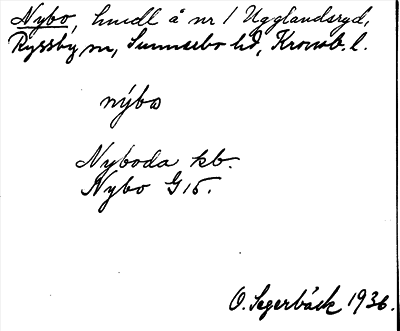 Nybo, hmdl å nr 1 Ugglandsryd,
Ryssby sn, Sunnerbo hd, Kronob. l.
nýbo
Nyboda kb.
Nybo G 15.
O. Segerbäck 1936.